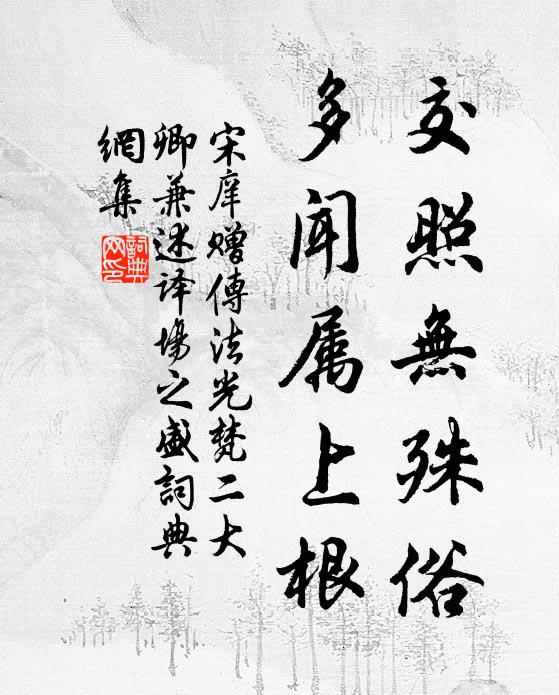 交照無殊俗
多聞属上根
宋庠赠傳法光梵二大
卿兼述译場之盛詞典
網集
詞典網印